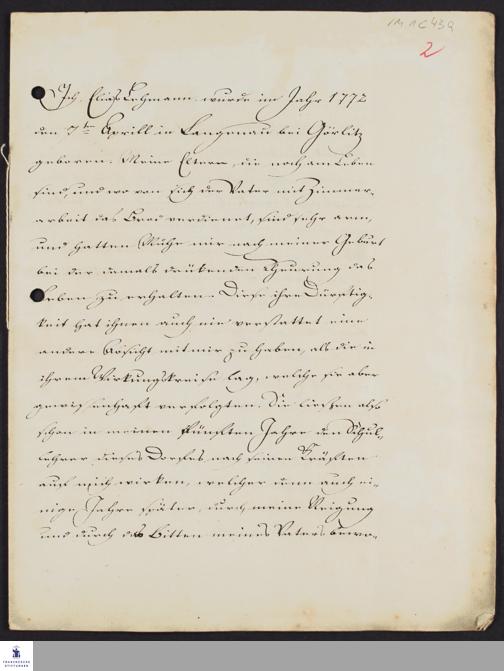 1M 1C 43a
2
Ich, Elias Lehmann, wurde im Jahr 1772
den 7ten Aprill in Langenau bei Görlitz
geboren. Meine Eltern, die noch am Leben
sind, und wo von sich der Vater mit Zimmer-
arbeit das Brod verdienet, sind sehr arm,
und hatten Mühe mir nach meiner Geburt
bei der damals drükenden Theurung das
Leben zu erhalten. Diese ihre Dürftig-
keit hat ihnen auch nie verstattet eine
andere Absicht mit mir zu haben, als die in
ihrem Wirkungskreise lag, welche sie aber
gewissenhaft verfolgten. Sie ließen also
schon in meinen fünften Jahre den Schul-
lehrer dieses Dorfes nach seinen Kräften
auf mich wirken, welcher denn auch ei-
nige Jahre später, durch meine Neigung
und durch das Bitten meines Vaters bewo-
FRANCKESCHE
STIFTUNGEN